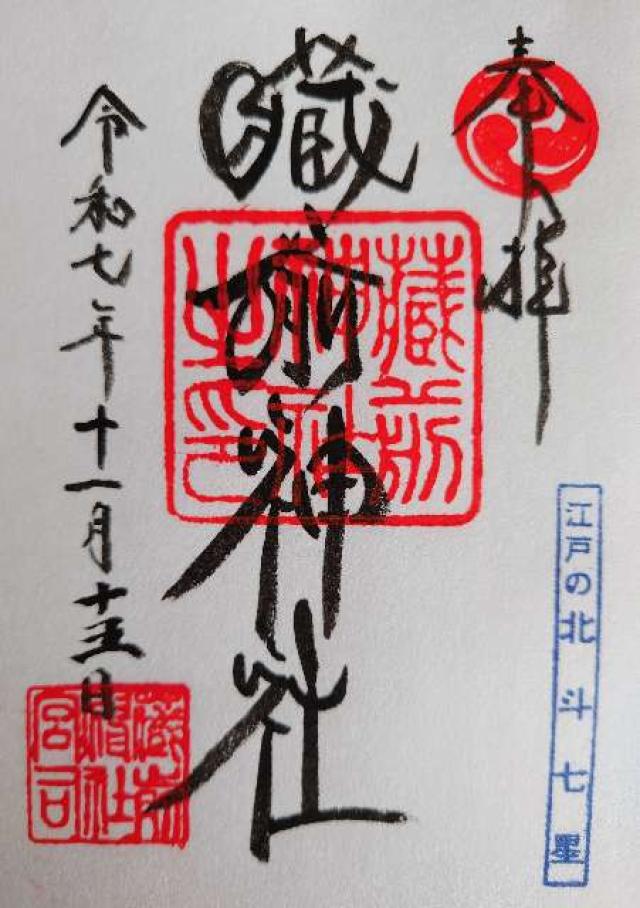 奉拝
藏前神社
藏前
神社
之印
江戸の北斗七星
令和七年十一月十五日
宮司